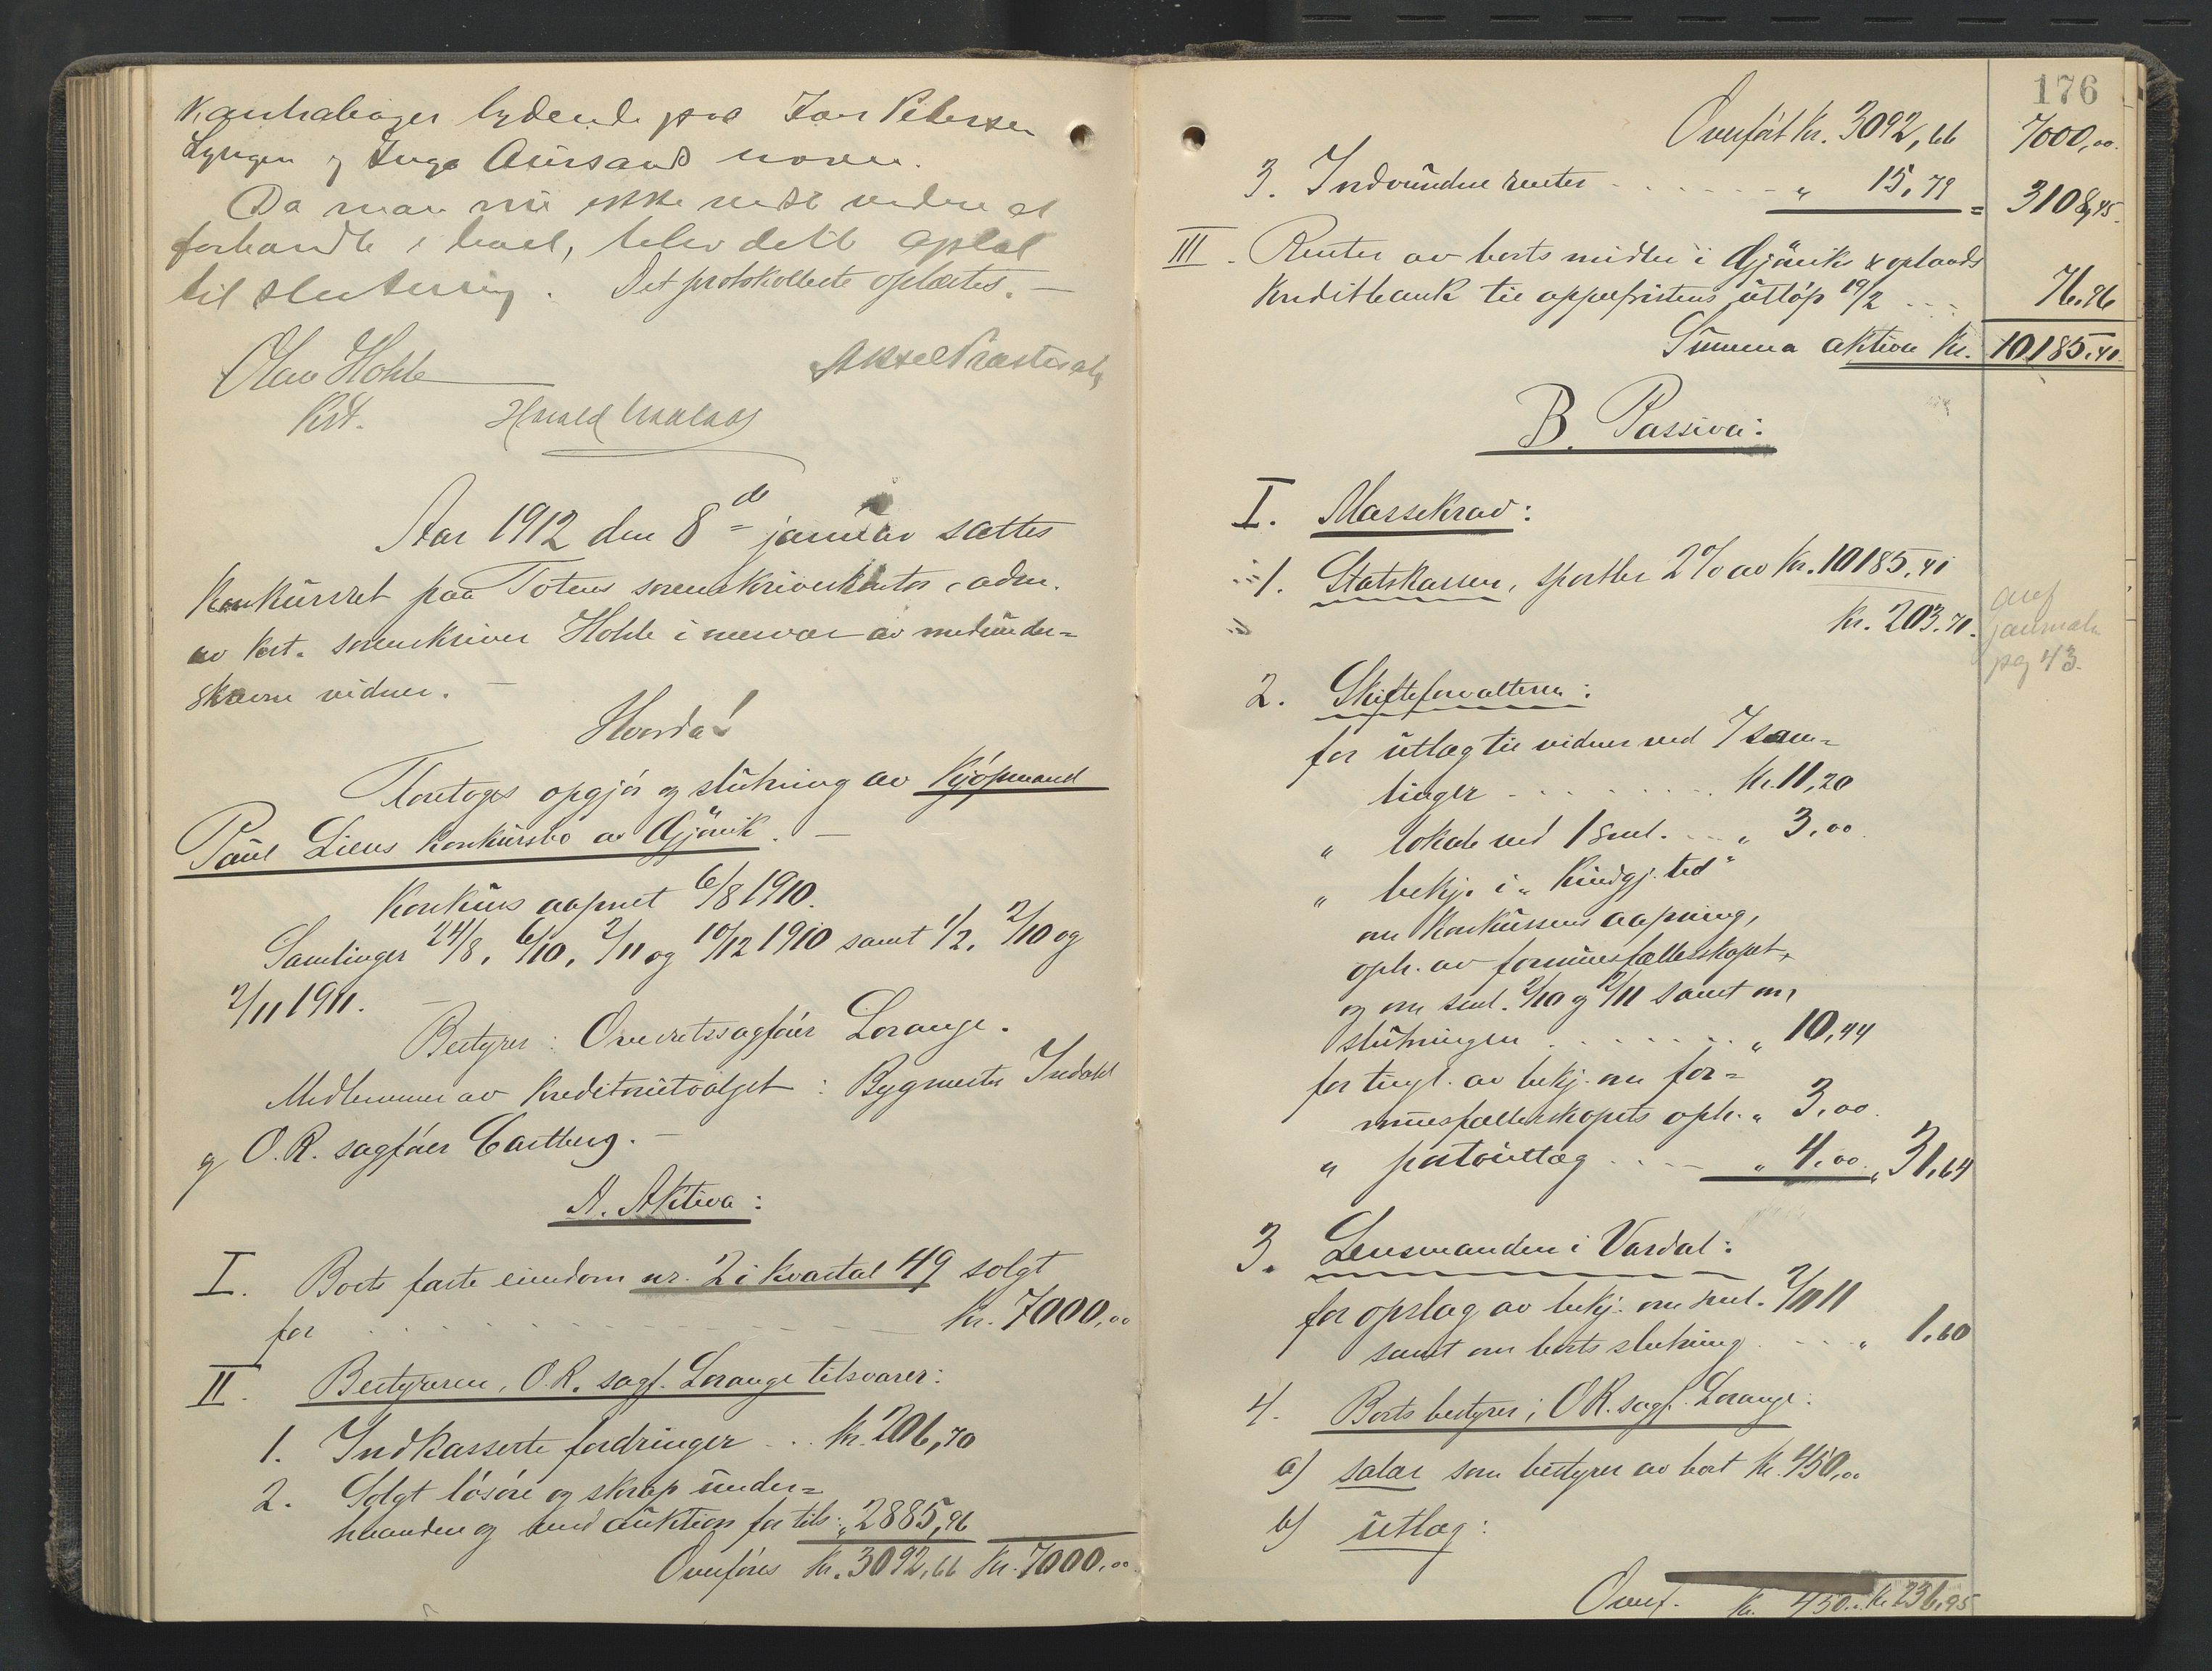 lydende paa
og Inga Aursand
Da man nu ikke
forhandle i boet, blev dette optat
til slutning. Det protokollerte oplæstes. —
Olav Hohle
kst.
Aar 1912 den 8de januar sattes
konkursret paa Totens sorenskriverkontor, adm.
av kst. sorenskriver Hohle i nærvær av medunder=
skrevne vidner. —
Hvorda!
Foretoges opgjör og slutning av kjöpmand
Paul Liens konkursbo av Gjövik. —
Konkurs aapnet 6/8 1910.
Samlinger 24/8, 6/10, 2/11 og 10/12 1910 samt 1/2, 2/10 og
2/11 1911. —
Bestyrer: Overretssagförer Lorange.
Medlemmer av kreditorutvalget: Bygmester Indahl
og O.R. sagförer Castberg. —
A. Aktiva:
I. Boets faste eiendom nr. 2 i kvartal 49 solgt
for . . . . . kr. 7000,00
II. Bestyreren, O.R. sagf. Lorange tilsvarer:
1. Indkasserte fordringer . . kr. 206,70
2. Solgt lösöre og skrap under=
haanden og ved auktion for tils. „ 2885,96
Overföres kr. 3092,66 kr. 7000,00
176
Overfört kr. 3092,66 7000,00
3. Indvundne renter . . . . „ 15,79 = 3108,45
III. Renter av boets midler i Gjöviks & oplands
Kreditbank til appelfristens utlöp 19/2 . . . 76,96
Summa aktiva kr. 10185,41
B. Passiva:
I. Massekrav:
1. Statskassen, sportler 2% av kr. 10185,41
kr. 203,71.
anf
journaln
pag 43.
2. Skifteforvalteren:
for utlæg til vidner ved 7 sam=
linger . . . . . kr. 11,20
„ lokale ved 1 saml. . . „ 3,00
„ bekj. i „Kundgj. tid“
om konkursens aapning,
oph. av formuesfællesskapet,
og om saml. 2/10 og 2/11 samt om
slutningen . . . . . „ 10,44
for tingl. av bekj. om for=
muesfællesskapets oph. „ 3,00
„ portoutlæg . . . „ 4,00 „ 31,64
3. Lensmanden i Vardal:
for opslag av bekj. om saml. 2/11 11
samt om boets slutning . . . „ 1,60
4. Boets bestyrer, O.R. sagf. Lorange:
a) salær som bestyrer av boet kr. 450,00
b) utlæg:
Overf. kr. 450.. kr 236,95